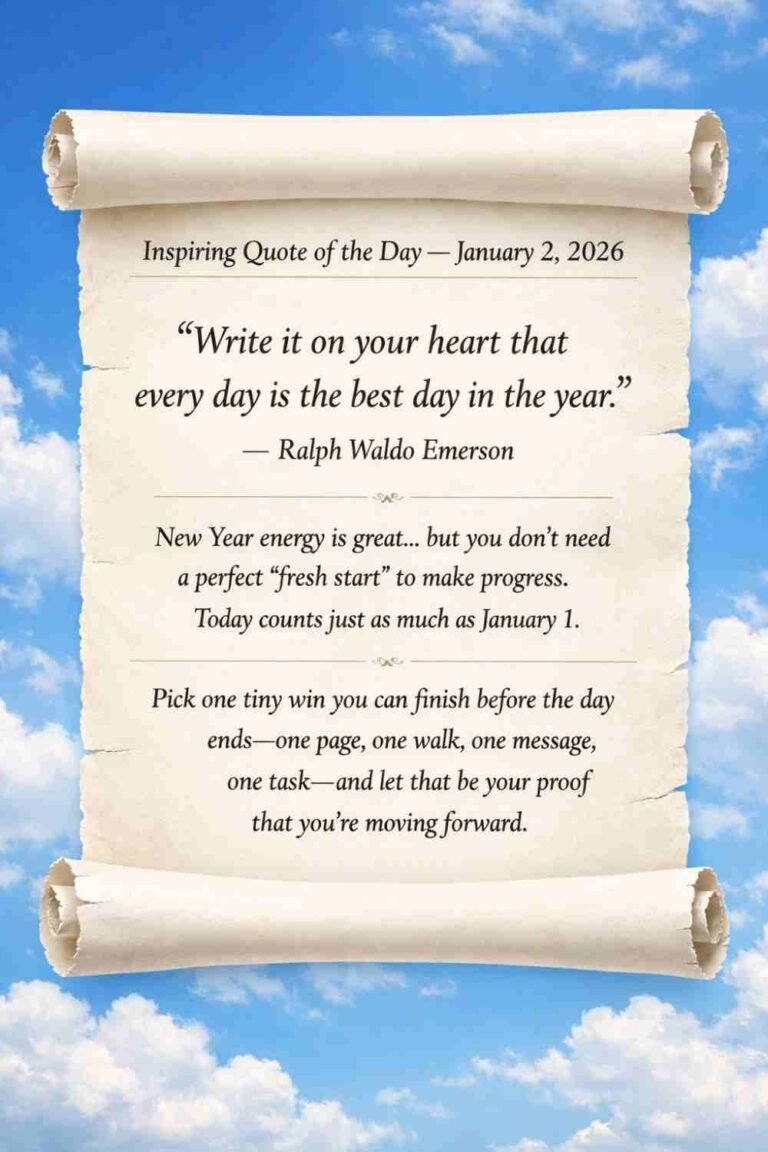 Inspiring Quote of the Day — January 2, 2026
“Write it on your heart that
every day is the best day in the year.”
— Ralph Waldo Emerson
New Year energy is great... but you don’t need
a perfect “fresh start” to make progress.
Today counts just as much as January 1.
Pick one tiny win you can finish before the day
ends—one page, one walk, one message,
one task—and let that be your proof
that you’re moving forward.